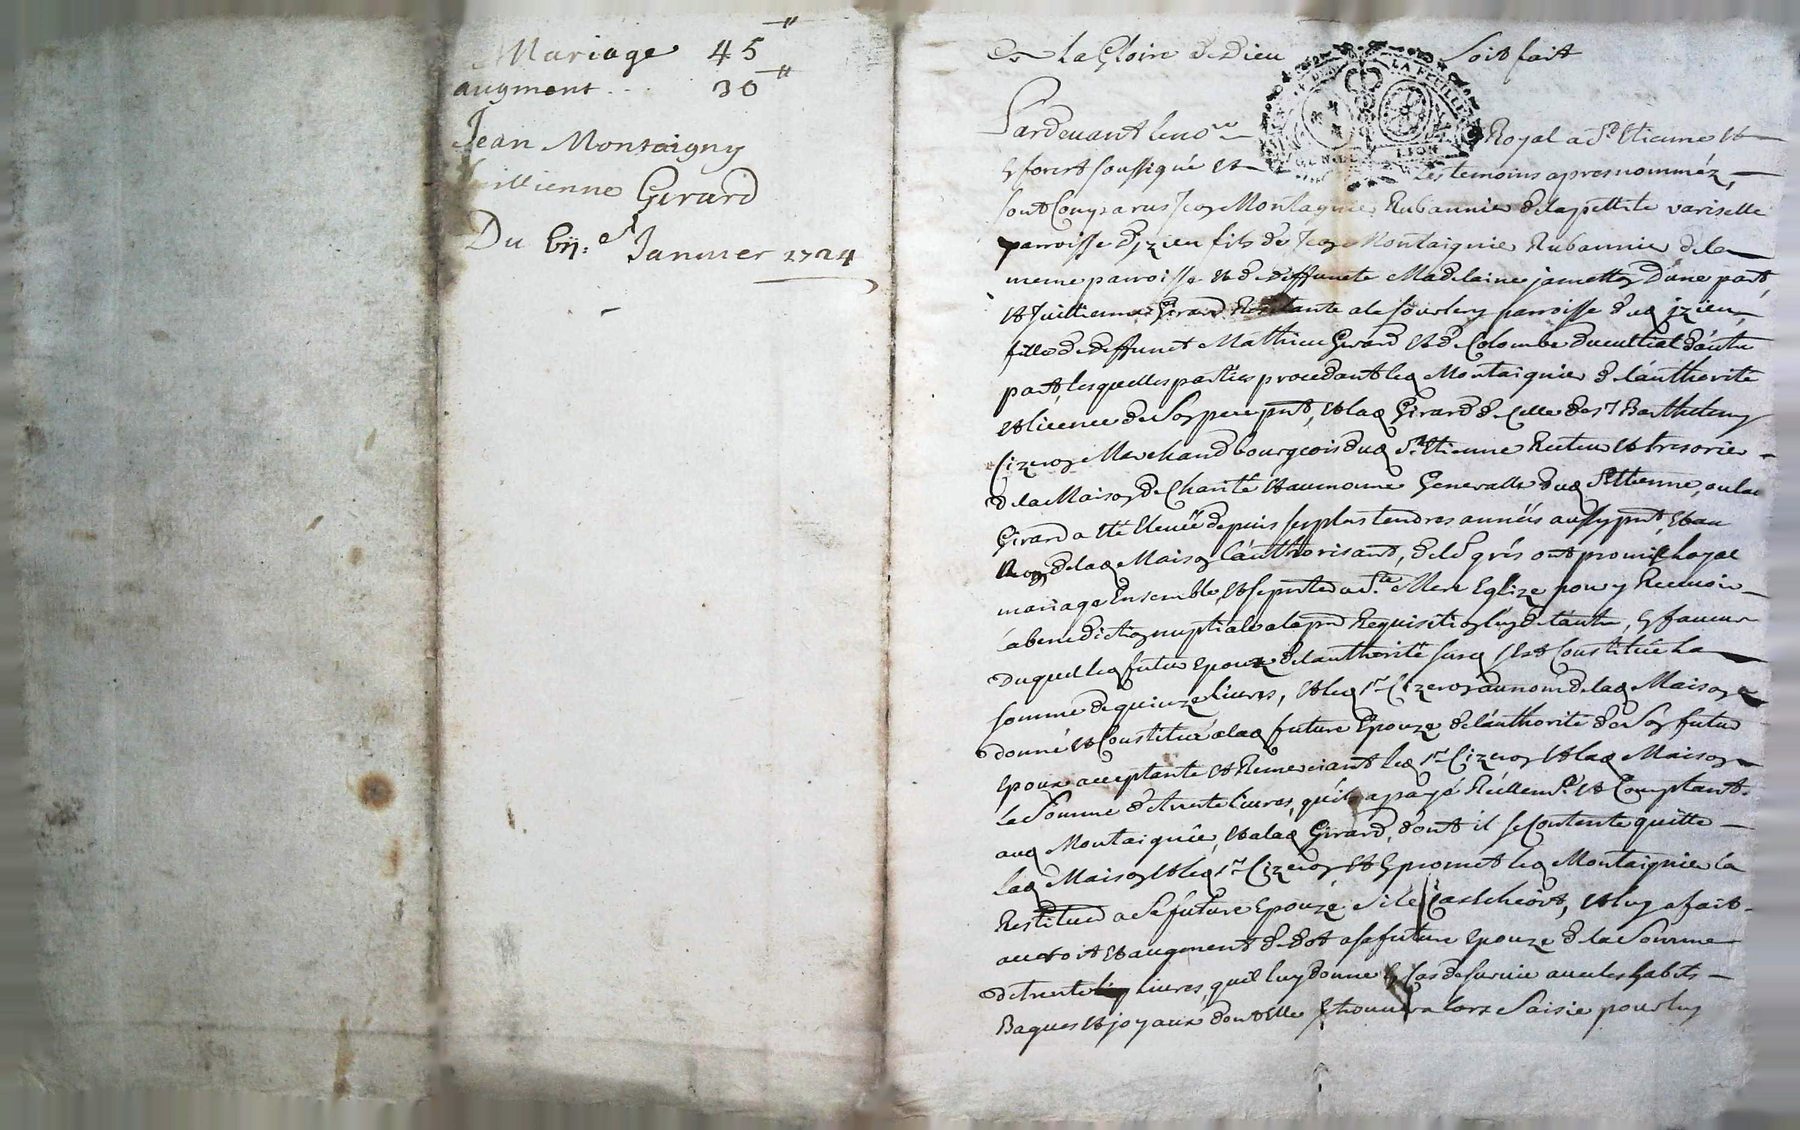 Mariage 45"
augment... 30"
Jean Montaigny
Jullienne Girard
Du vij.e Janvier 1724
A La Gloire de Dieu Soit fait
Pardevant le no.re Royal a St. Etienne et
forest soussigné et Les temoins apres nomméz,
sont Comparus Jean Montagnier Rubannier de la pettite variselle
parroisse dizieu fils de Jean Montaignier Rubannier de la
meme parroisse et de deffuncte Madelaine jametton Dune part,
et Jullienne Girard Residante a le sourbery parroisse dud izieu,
fille de deffunct Mathieu Girard et de Colombe ducultial dautre
part, lesquelles parties procedant led Montaignier de lauthorité
et licence de Son pere pnt, et lad Girard de Celle de sr Barthelemy
Cizeron Marchand bourgeois dud St. Etienne Recteur et tresorier
de la Maison de Charité et aumone Generalle dud St. Etienne, ou lad
Girard a été Elevée depuis ses plus tendres années aussy pnt, et au
Nom de lad Maison lauthorisant, de les grés ont promis Loyal
mariage Ensemble, et se pnter a Ste. Mere Eglize pour y Recevoir
la benediction nuptiale a la pre Requisition lun de lautre, En faveur
Duquel led futur Epoux de lauthorité susd sest Constitué La
somme de quinze livres, et led sr Cizeron au nom de lad Maison a
donné et Constitué a lad future Epouze de lauthorité de Son futur
Epoux acceptante et Remerciant led sr Cizeron et lad Maison
La Somme de trente livres, quil a payé Réellemt. et Comptant
aud Montaignier, et a lad Girard, dont il se Contente quitte
lad Maison et led sr Cizeron et En promet led Montaignier la
Restitution a Sa future Epouze Si le Cas Echeoit, et luy a fait
accroit et augment de dot a sa future Epouze de la Somme
de trente livres, quil luy donne En Cas de survie avec les habits
Bagues et joyaux dont Elle se trouvera lors Saisie pour luy